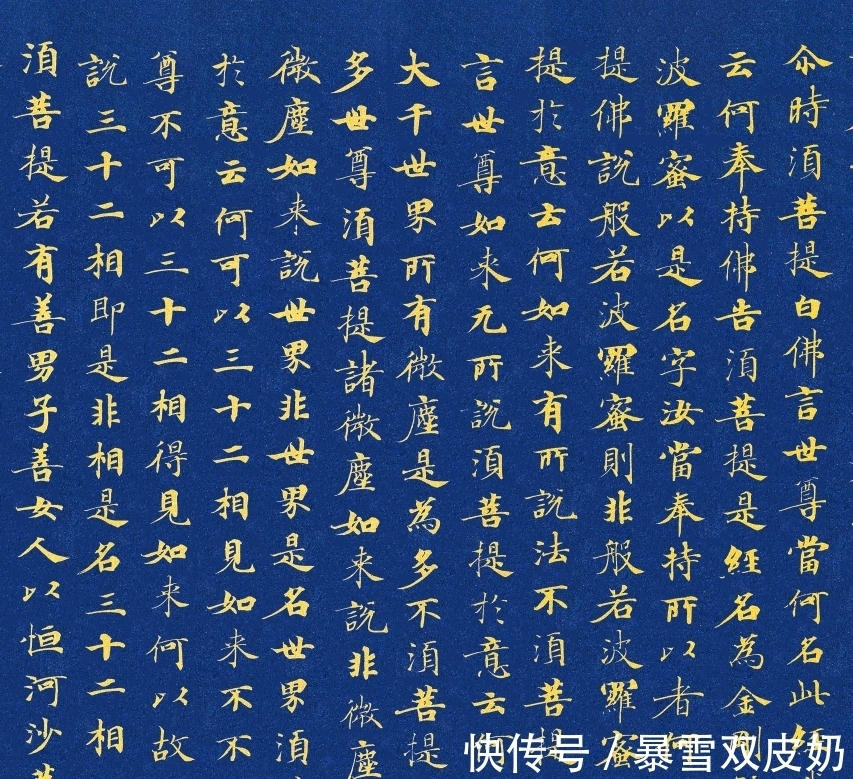 尒時湏菩提白佛言世尊當何名此經
云何奉持佛告湏菩提是經名為金剛
波羅蜜以是名字汝當奉持所以者何
提佛說般若波羅蜜則非般若波羅蜜
提於意云何如来有所說法不湏菩提
言世尊如来无所說湏菩提於意云何
大千世界所有微塵是為多不湏菩提
多世尊湏菩提諸微塵如来說非微塵
微塵如来說世界非世界是名世界湏
於意云何可以三十二相見如来不不
尊不可以三十二相得見如来何以故
說三十二相即是非相是名三十二相
湏菩提若有善男子善女人以恒河沙
快传号/暴雪双皮奶